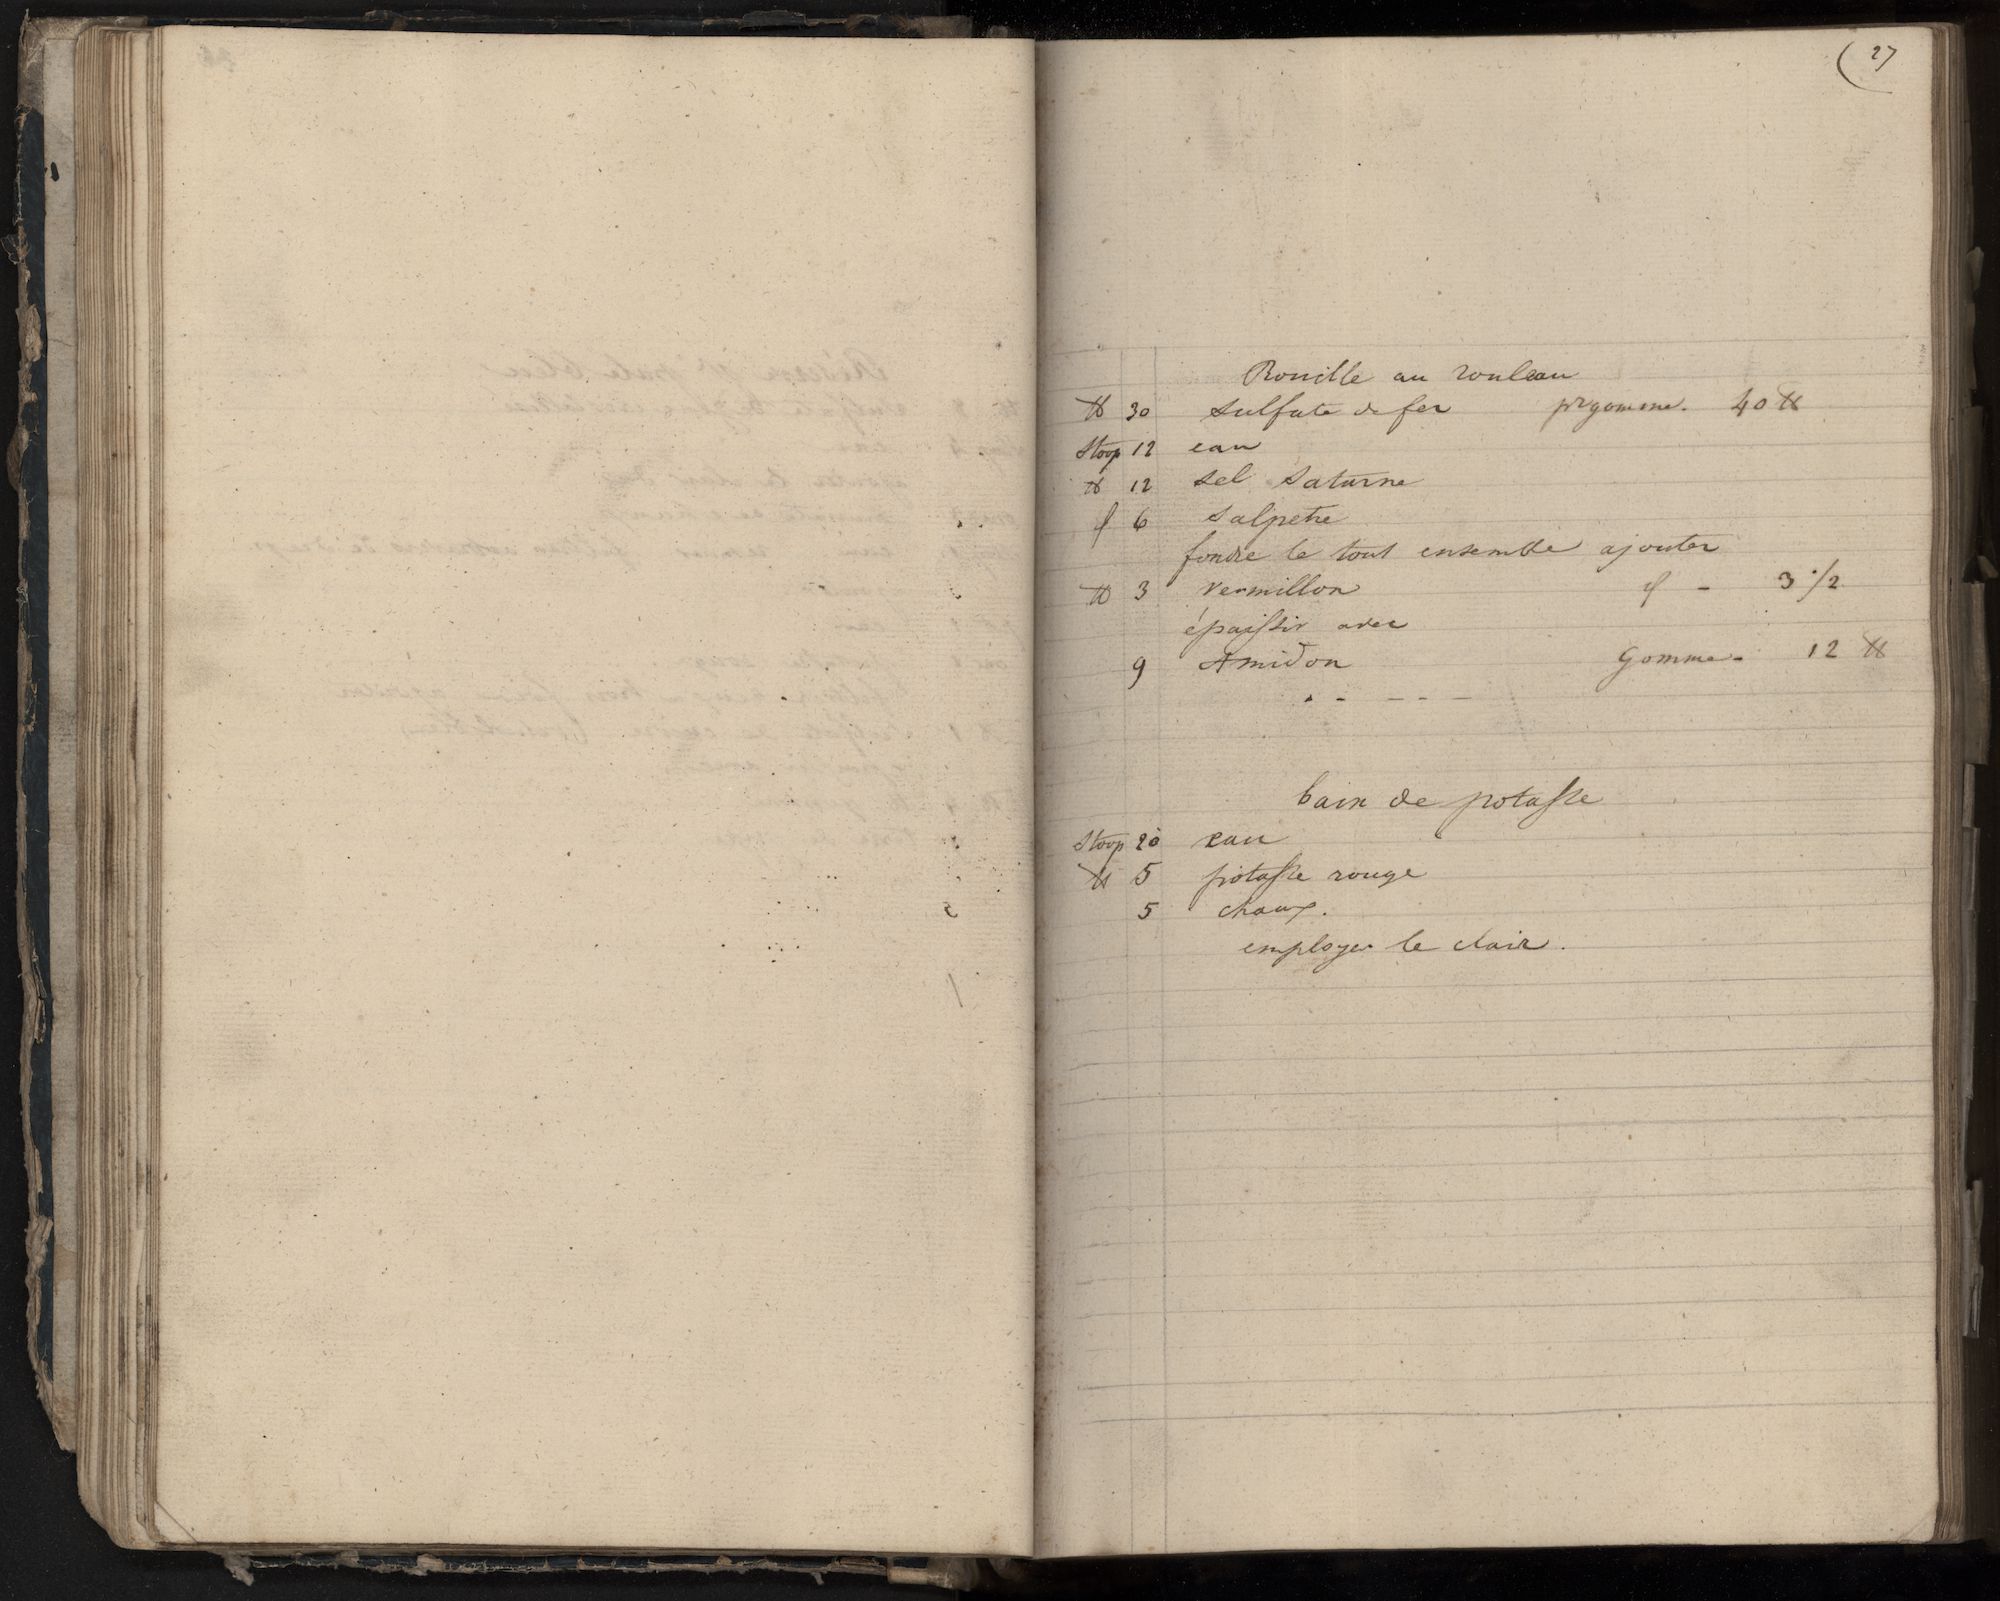 27
Rouille au rouleau
℔ 30 sulfate de fer pr gomme. 40 ℔
Stoop 12 eau
℔ 12 sel Saturne
6 Salpetre
fondre le tout ensemble ajouter
℔ 3 vermillon - 3 1/2
épaissir avec
9 Amidon Gomme - 12 ℔
bain de potasse
Stoop 20 eau
℔ 5 potasse rouge
5 chaux.
employer le clair.